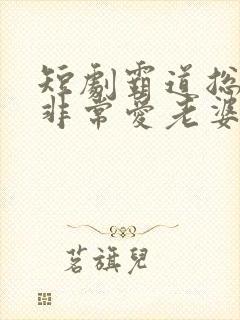 短劇霸道总
非常愛老婆
茗旗兒